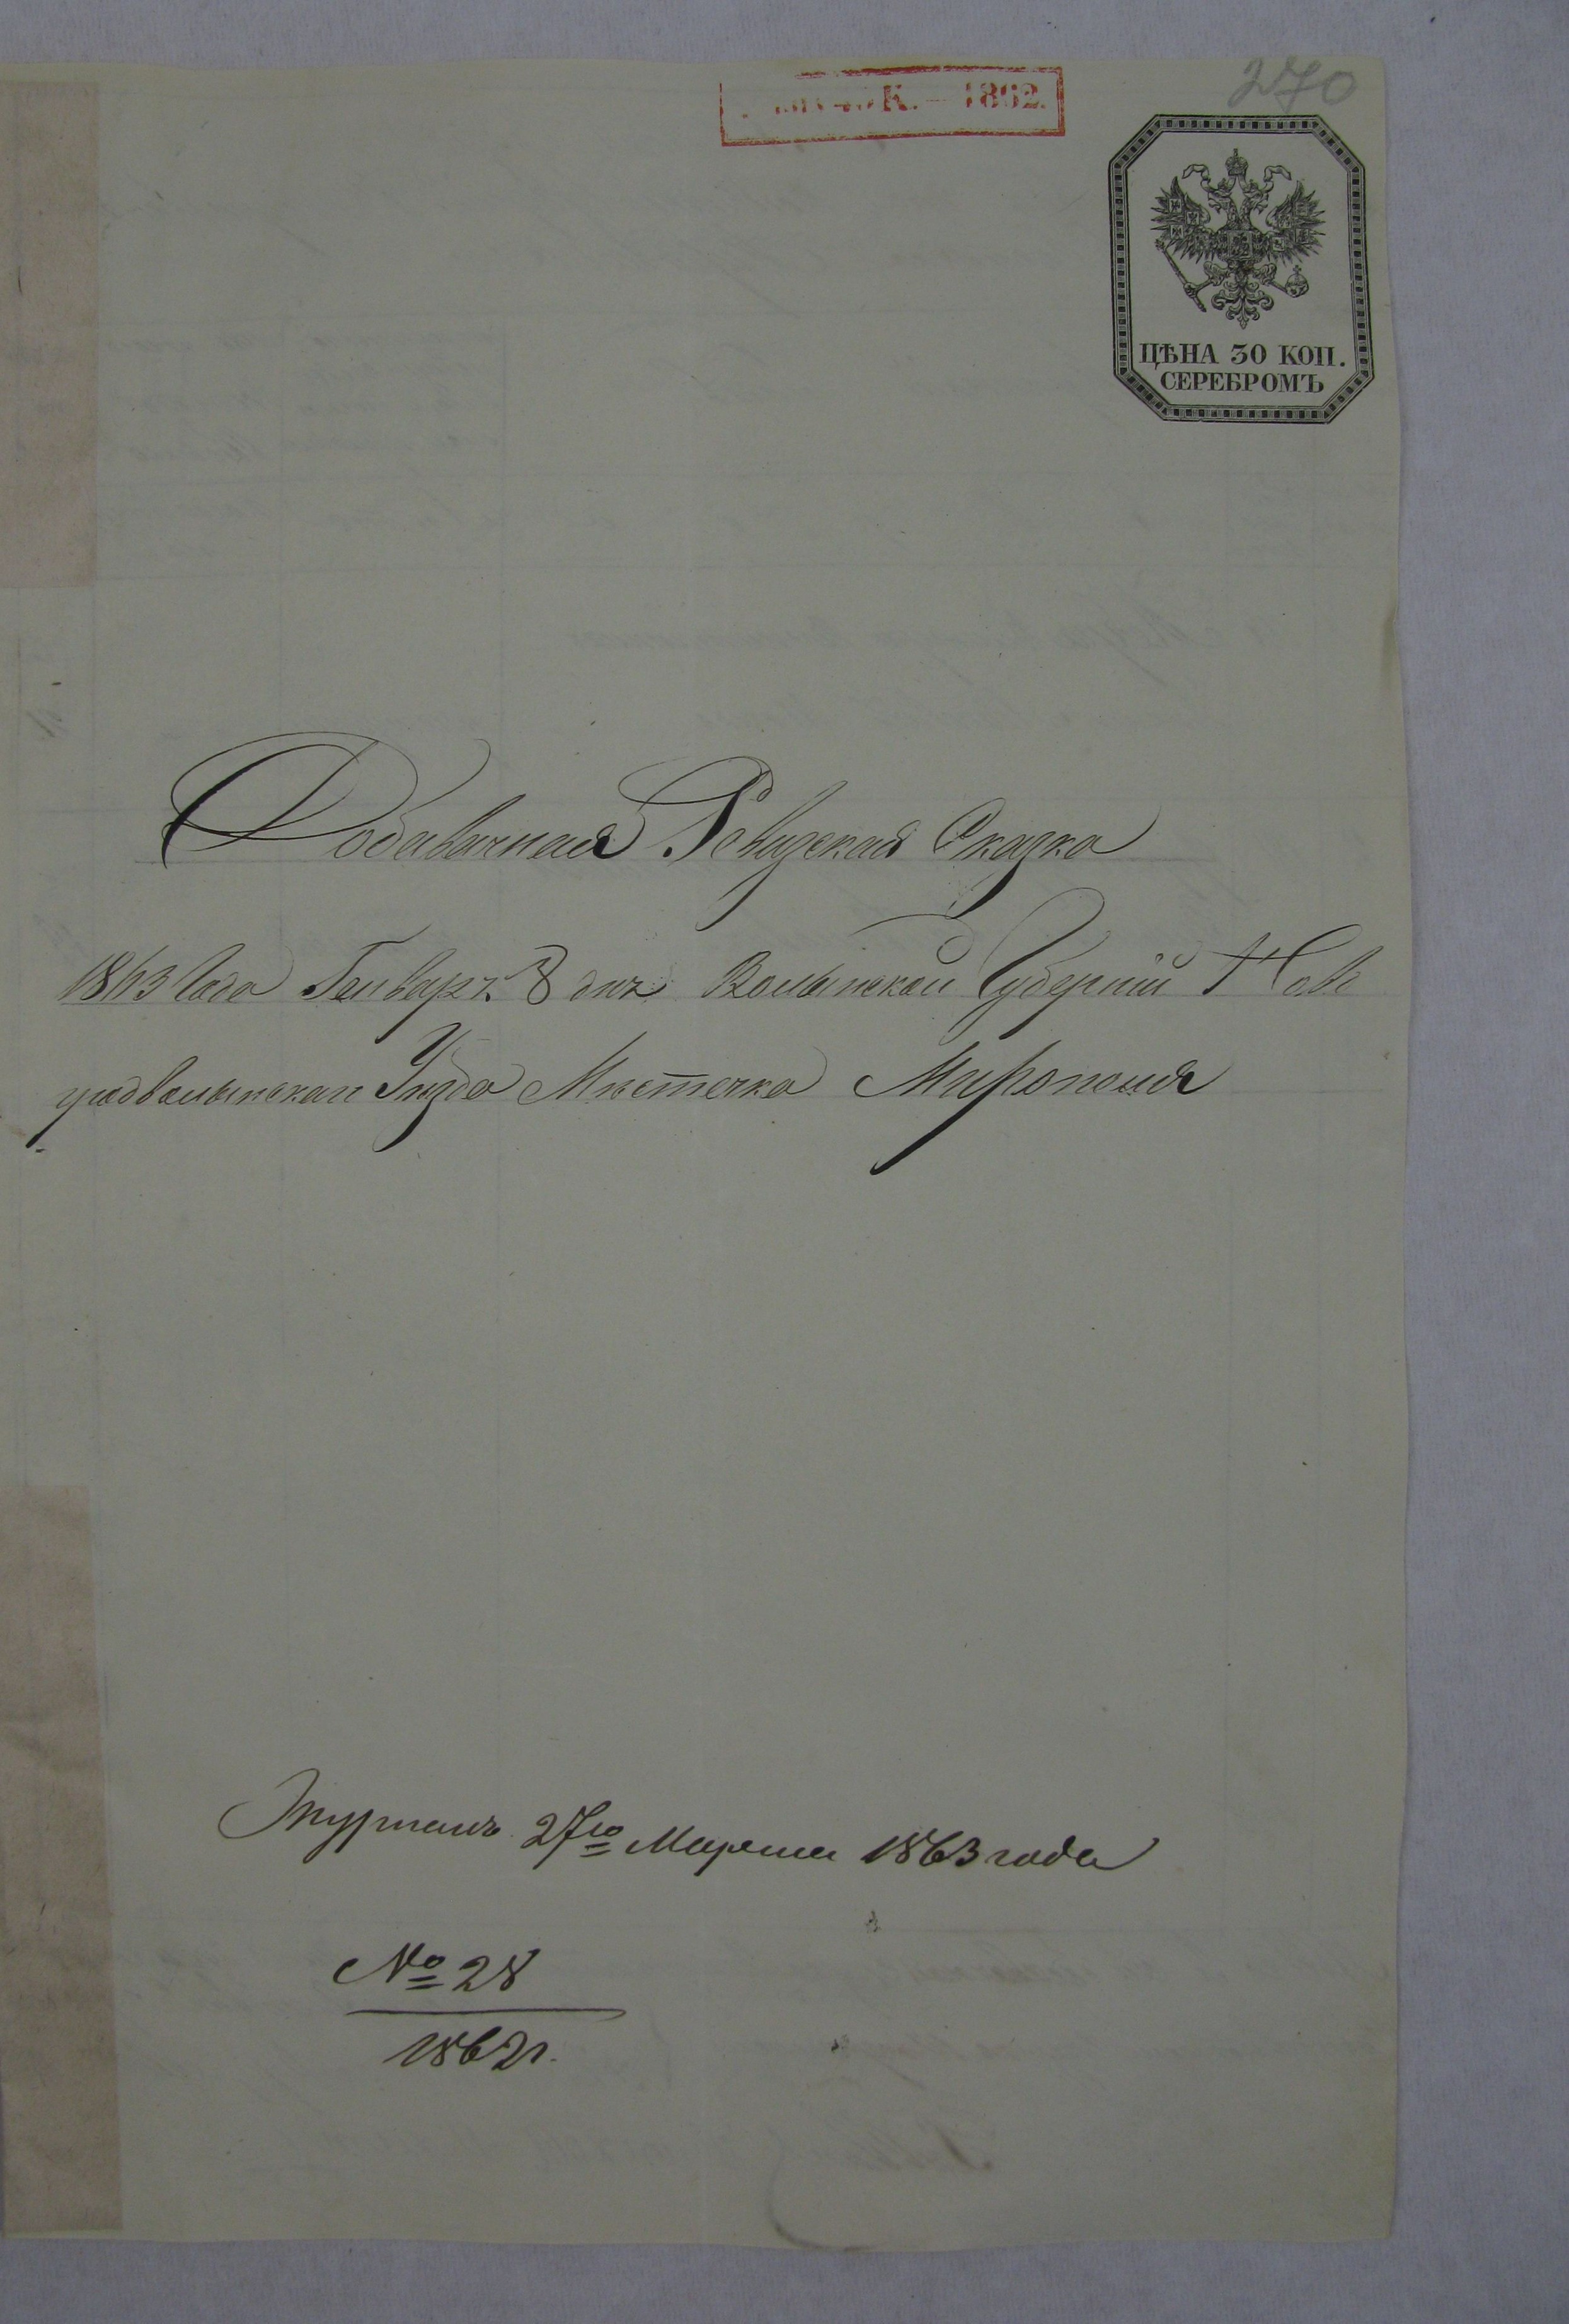 270
40 К. — 1862.
ЦѢНА 30 КОП.
СЕРЕБРОМЪ
Добавочная Ревизская Сказка
1863 Года Генваря 8 дня Волынской Губерніи Ново
градволынскаго Уѣзда Мѣстечка Мирополя
Журналъ 27го Марта 1863 года
№ 28
1862 г.